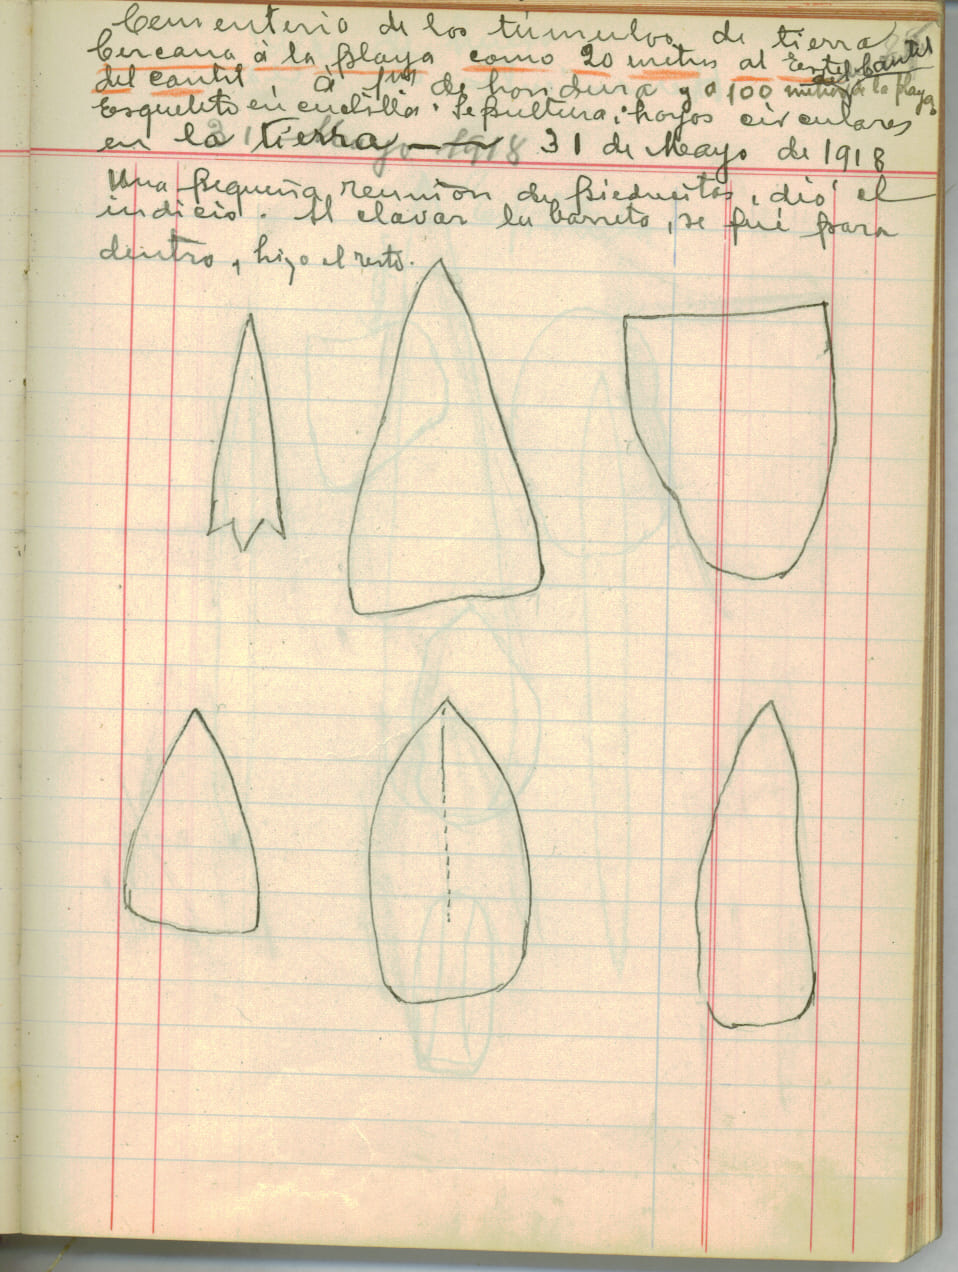 Cementerio de los túmulos de tierra
Cercana á la playa como 20 metros al Este del Cantil
del cantil á 1m de hondura y a 100 metros de la playa
Esqueleto en cuclillas. Sepultura: hoyos circulares
en la tierra — 31 de Mayo de 1918
Una pequeña reunion de piedrecitas, dió el
indicio. Al clavar la barreta, se fué para
dentro, hizo el resto.